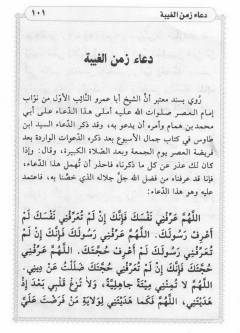 دعاء زمن الغيبة
١٠١
دعاء زمن الغيبة
رُوي بسند معتبر أنَّ الشيخ أبا عمرو النَّائب الأوّل من نوّاب
إمام العصر صلوات الله عليه أملى هذا الدُّعاء على أبي
محمد بن همام وأمره أن يدعو به، وقد ذكر الدُّعاء السيد ابن
طاوس في كتاب جمال الأسبوع بعد ذكره الدَّعوات الواردة بعد
فريضة العصر يوم الجمعة وبعد الصَّلاة الكبيرة، وقال: وإذا
كان لك عذر عن كل ما ذكرناه فاحذر أن تُهمل هذا الدُّعاء،
فإنا قد عرفناه من فضل الله جلَّ جلاله الذي خصَّنا به، فاعتمد
عليه وهو هذا الدُّعاء:
اللَّهُمَّ عَرِّفْنِي نَفْسَكَ فَإِنَّكَ إِنْ لَمْ تُعَرِّفْنِي نَفْسَكَ لَمْ
أَعْرِفْ رَسُولَكَ. اللَّهُمَّ عَرِّفْنِي رَسُولَكَ فَإِنَّكَ إِنْ لَمْ
تُعَرِّفْنِي رَسُولَكَ لَمْ أَعْرِفْ حُجَّتَكَ. اللَّهُمَّ عَرِّفْنِي
حُجَّتَكَ فَإِنَّكَ إِنْ لَمْ تُعَرِّفْنِي حُجَّتَكَ ضَلَلْتُ عَنْ دِينِي.
اللَّهُمَّ لا تُمِتْنِي مِيتَةً جَاهِلِيَّةً، وَلا تُزِغْ قَلْبِي بَعْدَ إِذْ
هَدَيْتَنِي، اللَّهُمَّ فَكَمَا هَدَيْتَنِي لِوِلايَةِ مَنْ فَرَضْتَ عَلَيَّ